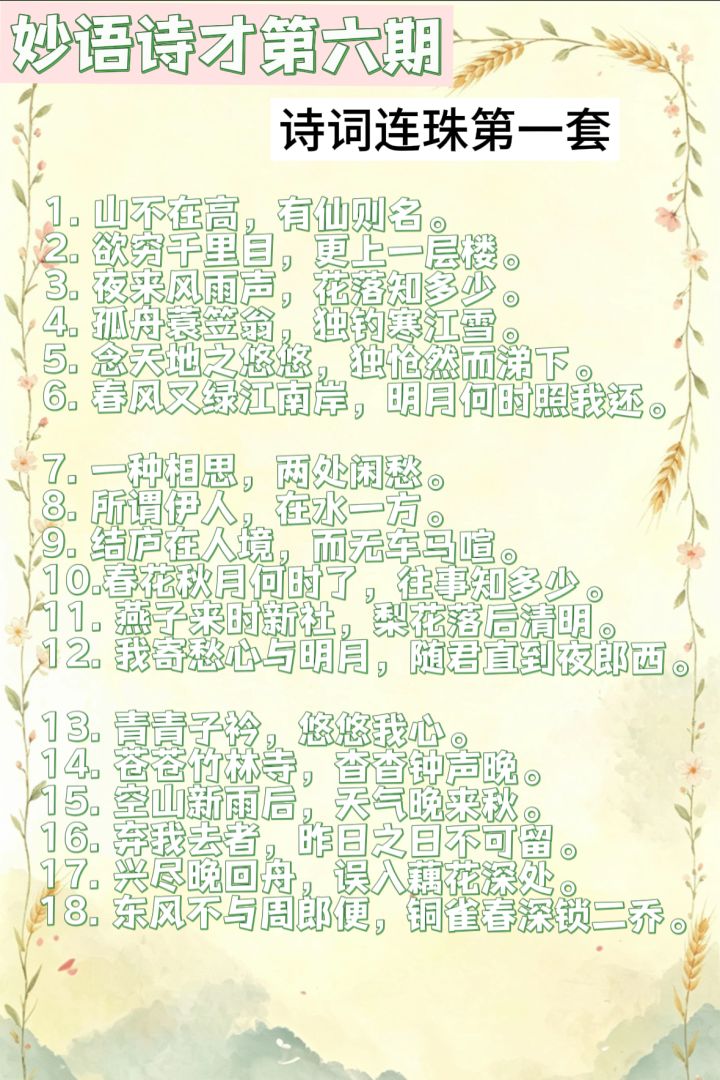 妙语诗才第六期
诗词连珠第一套
1. 山不在高，有仙则名。
2. 欲穷千里目，更上一层楼。
3. 夜来风雨声，花落知多少。
4. 孤舟蓑笠翁，独钓寒江雪。
5. 念天地之悠悠，独怆然而涕下。
6. 春风又绿江南岸，明月何时照我还。
7. 一种相思，两处闲愁。
8. 所谓伊人，在水一方。
9. 结庐在人境，而无车马喧。
10.春花秋月何时了，往事知多少。
11. 燕子来时新社，梨花落后清明。
12. 我寄愁心与明月，随君直到夜郎西。
13. 青青子衿，悠悠我心。
14. 苍苍竹林寺，杳杳钟声晚。
15. 空山新雨后，天气晚来秋。
16. 弃我去者，昨日之日不可留。
17. 兴尽晚回舟，误入藕花深处。
18. 东风不与周郎便，铜雀春深锁二乔。